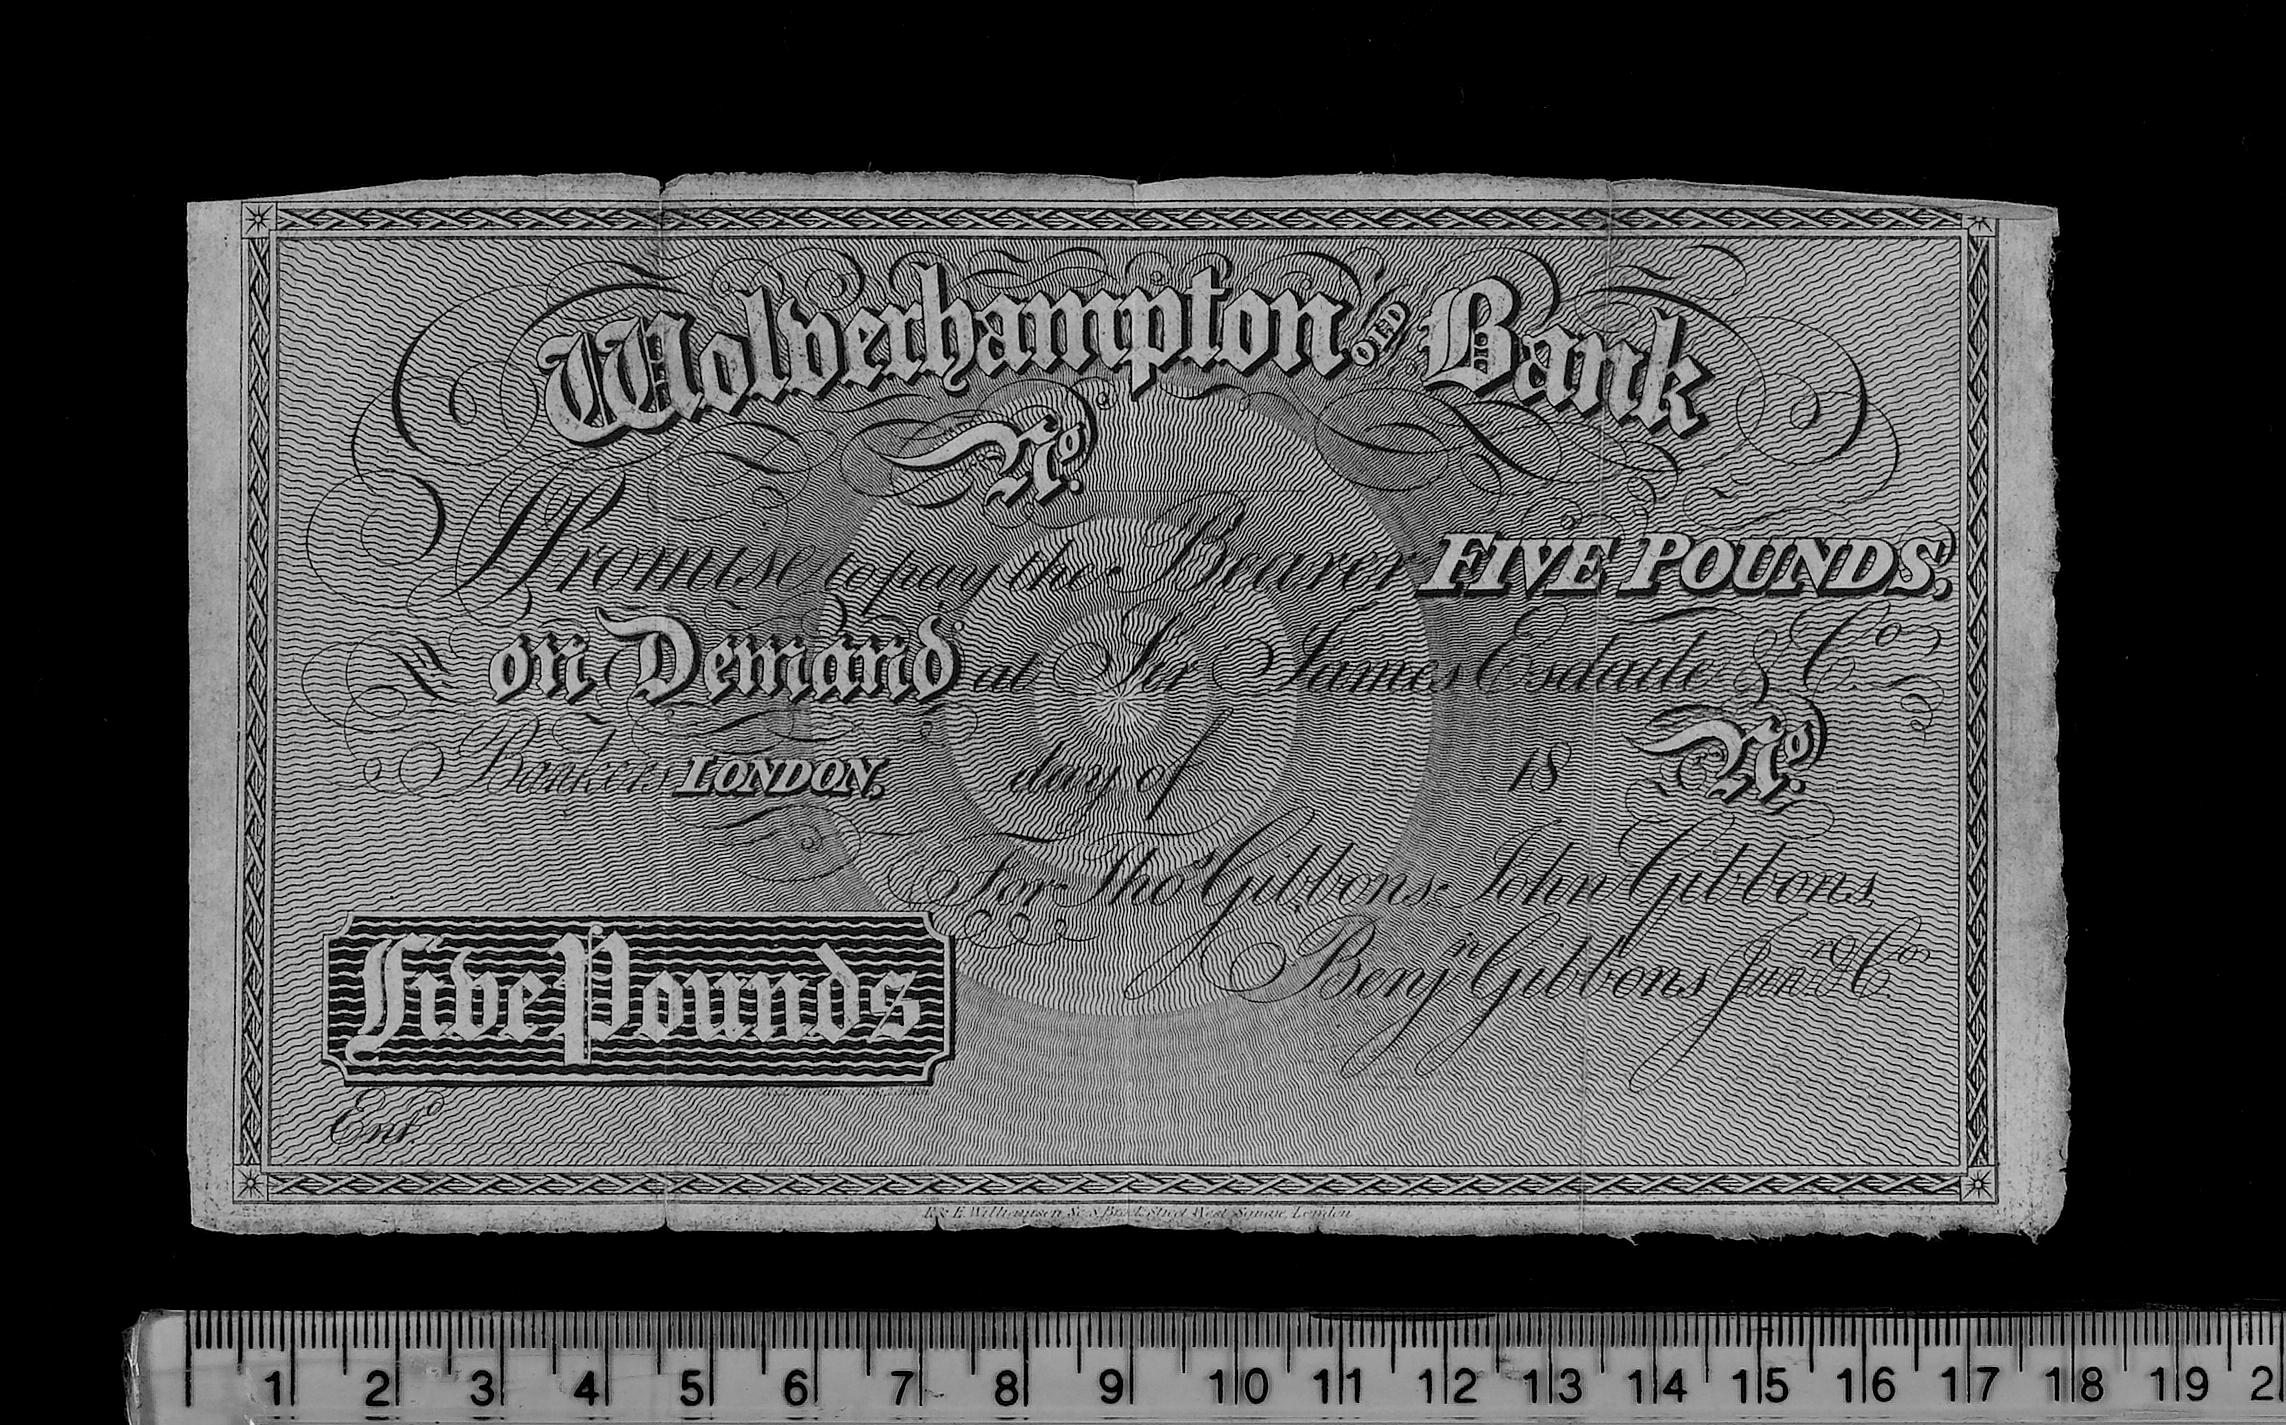 Wolverhampton OLD Bank
No.
I Promise to pay the Bearer FIVE POUNDS,
on Demand at Sir James Esdaile & Co.
Bankers LONDON, day of 18 No.
For Thos Gibbons John Gibbons
Benjn Gibbons Junr & Co.
Five Pounds
Entd.
Williamson Sc. Brook Street West Square London
1 2 3 4 5 6 7 8 9 10 11 12 13 14 15 16 17 18 19 2